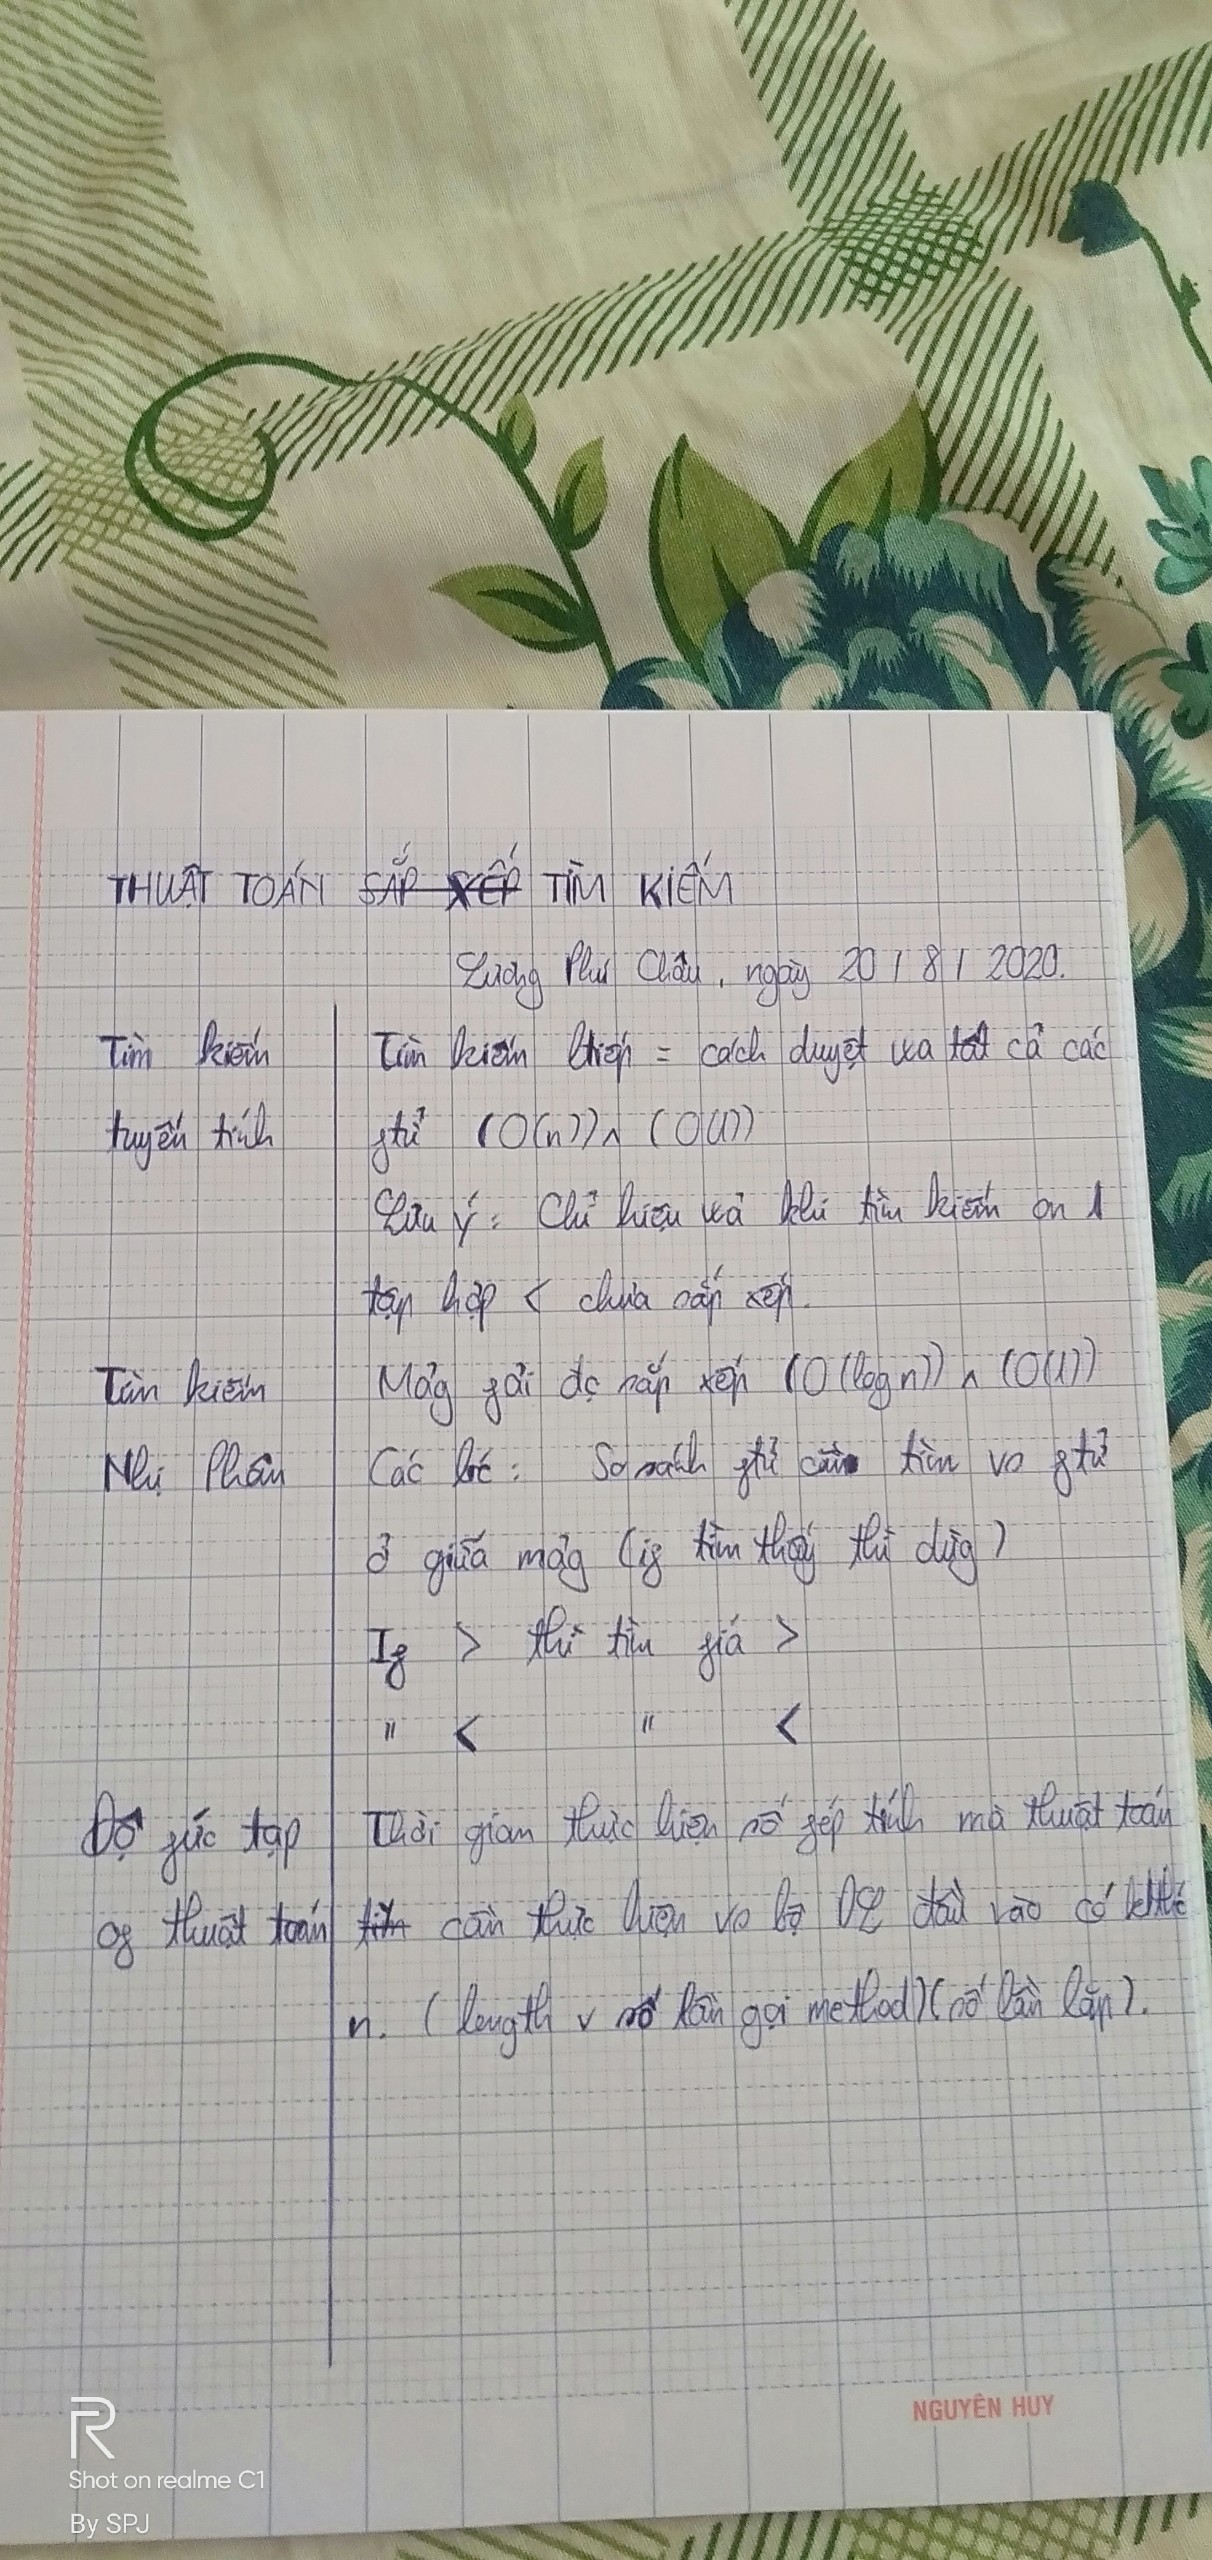 THUẬT TOÁN SẮP XẾP TÌM KIẾM
Lương Phú Châu, ngày 20/8/2020.
Tìm kiếm
tuyến tính
Tìm kiếm = cách duyệt wa tất cả các
ftử (O(n)) ^ (O(1))
Lưu ý: Chỉ hiệu wả khi tìm kiếm on 1
tập hợp < chưa sắp xếp.
Tìm kiếm
Nhị Phân
Mảg fải đc sắp xếp (O(log n)) ^ (O(1))
Các bc: So sánh ftử cần tìm vs ftử
ở giữa mảg (if tìm thấy thì dừg)
If > thì tìm fía >
" < " <
Độ fức tạp
of thuật toán
Thời gian thực hiện số fép tính mà thuật toán
cần thực hiện vs bộ DL đầu vào có kthc
n. (length v số lần gọi method)(số lần lặp).
NGUYÊN HUY
R
Shot on realme C1
By SPJ